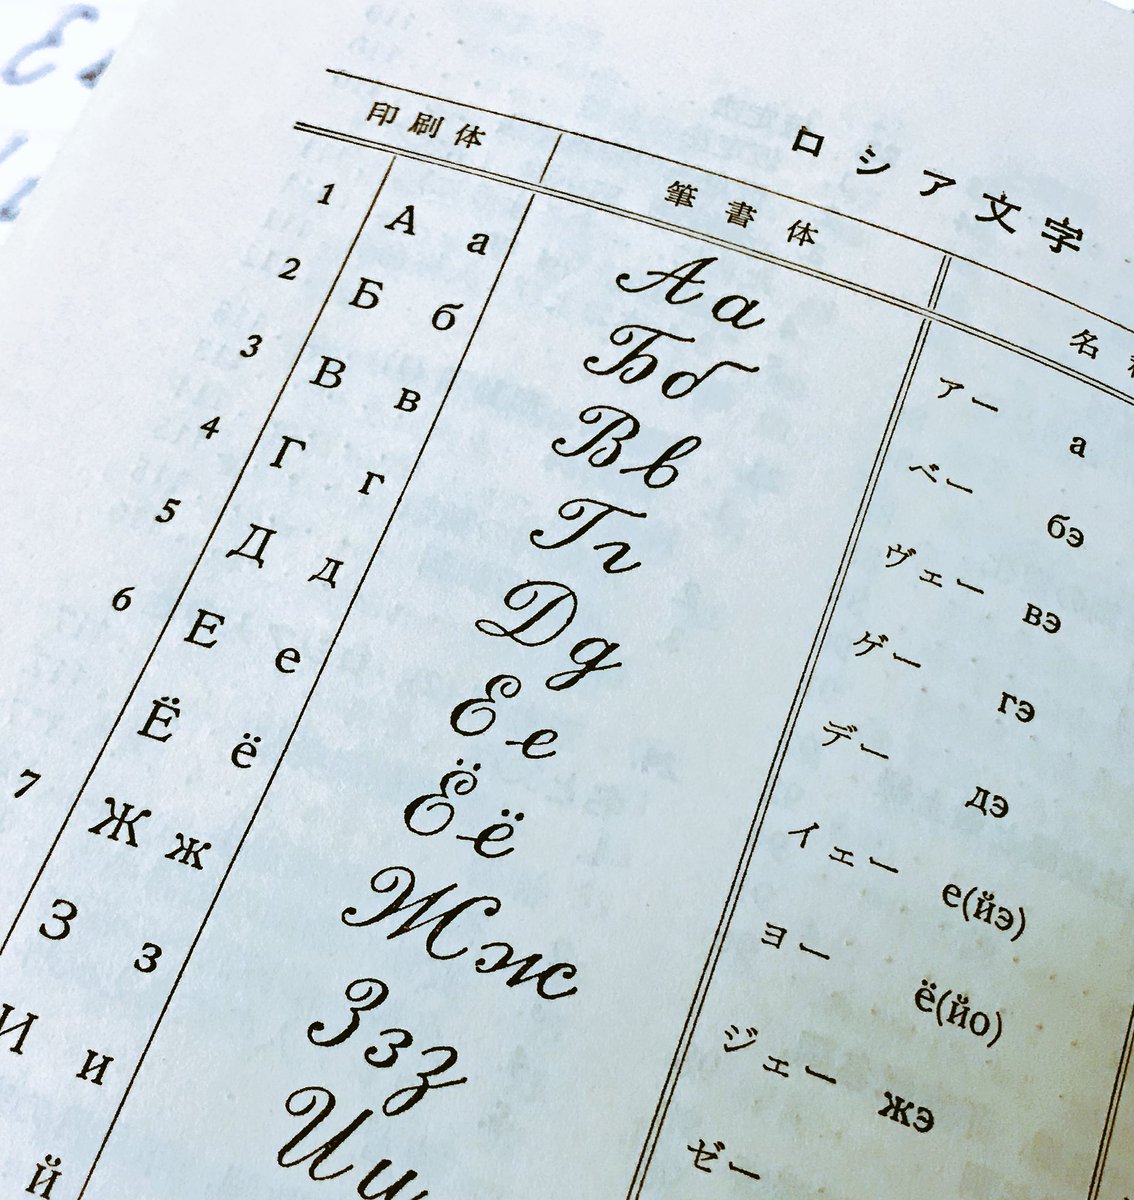 ロシア文字
印刷体 筆書体 名
1 А а Аа アー а
2 Б б Бб ベー бэ
3 В в Вв ヴェー вэ
4 Г г Гг ゲー гэ
5 Д д Дд デー дэ
6 Е е Ее イェー е(йэ)
Ё ё Ёё ヨー ё(йо)
7 Ж ж Жж ジェー жэ
З з Ззз ゼー
И и Ии
й